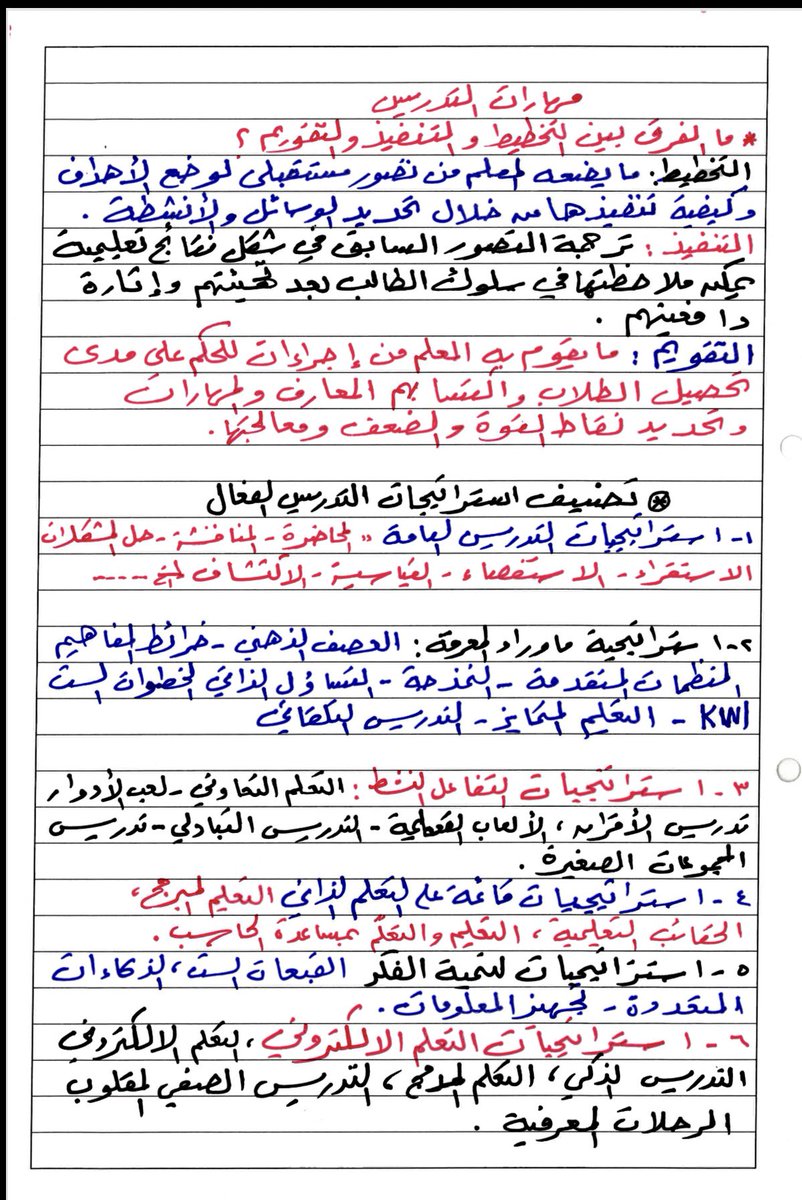 مهارات التدريس
* ما الفرق بين التخطيط و التنفيذ والتقويم ؟
التخطيط: ما يضعه المعلم من تصور مستقبلي لوضع الأهداف
وكيفية تنفيذها من خلال تحديد الوسائل والأنشطة .
التنفيذ : ترجمة التصور السابق في شكل نتائج تعليمية
يمكن ملاحظتها في سلوك الطالب بعد تهيئتهم وإثارة
دافعيتهم .
التقويم : ما يقوم به المعلم من إجراءات للحكم على مدى
تحصيل الطلاب واكتسابهم المعارف والمهارات
وتحديد نقاط القوة والضعف ومعالجتها.
* تصنيف استراتيجيات التدريس الفعال
١- استراتيجيات التدريس العامة " المحاضرة - المناقشة - حل المشكلات
الاستقراء - الاستقصاء - القياسية - الاكتشاف الخ -----
٢- استراتيجية ماوراء المعرفة : العصف الذهني - خرائط المفاهيم
المنظمات المتقدمة - النمذجة - التساؤل الذاتي الخطوات الست
KWl - التعليم المتمايز - التدريس التكقائي
٣ - استراتيجيات التفاعل النشط : التعلم التعاوني - لعب الأدوار
تدريس الأقران ، الألعاب التعليمية - التدريس التبادلي - تدريس
المجموعات الصغيرة .
٤ - استراتيجيات قائمة على التعلم الذاتي التعليم المبرمج ،
الحقائب التعليمية ، التعليم والتعلم بمساعدة الحاسب .
٥ - استراتيجيات لتنمية الفكر القبعات الست ، الذكاءات
المتعددة - تجهيز المعلومات .
٦ - استراتيجيات التعلم الالكتروني ، التعلم الالكتروني
التدريس الذكي ، التعلم المدمج ، التدريس الصفي المقلوب
الرحلات المعرفية .